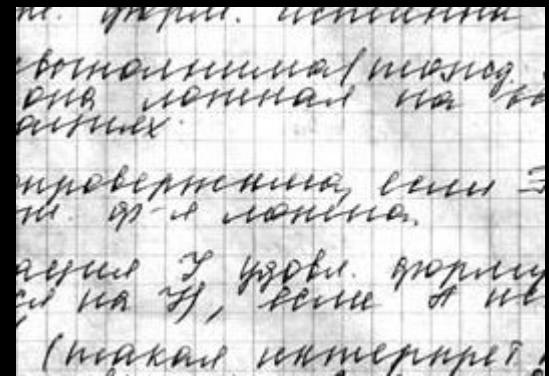 т. форм. истинна
выполнима (тожд.
она ложная на
ациях.
опровержима, если ∃
т. ф-я ложна.
ация I удовл. форму
ся на I), если A ис
(такая интерпрет